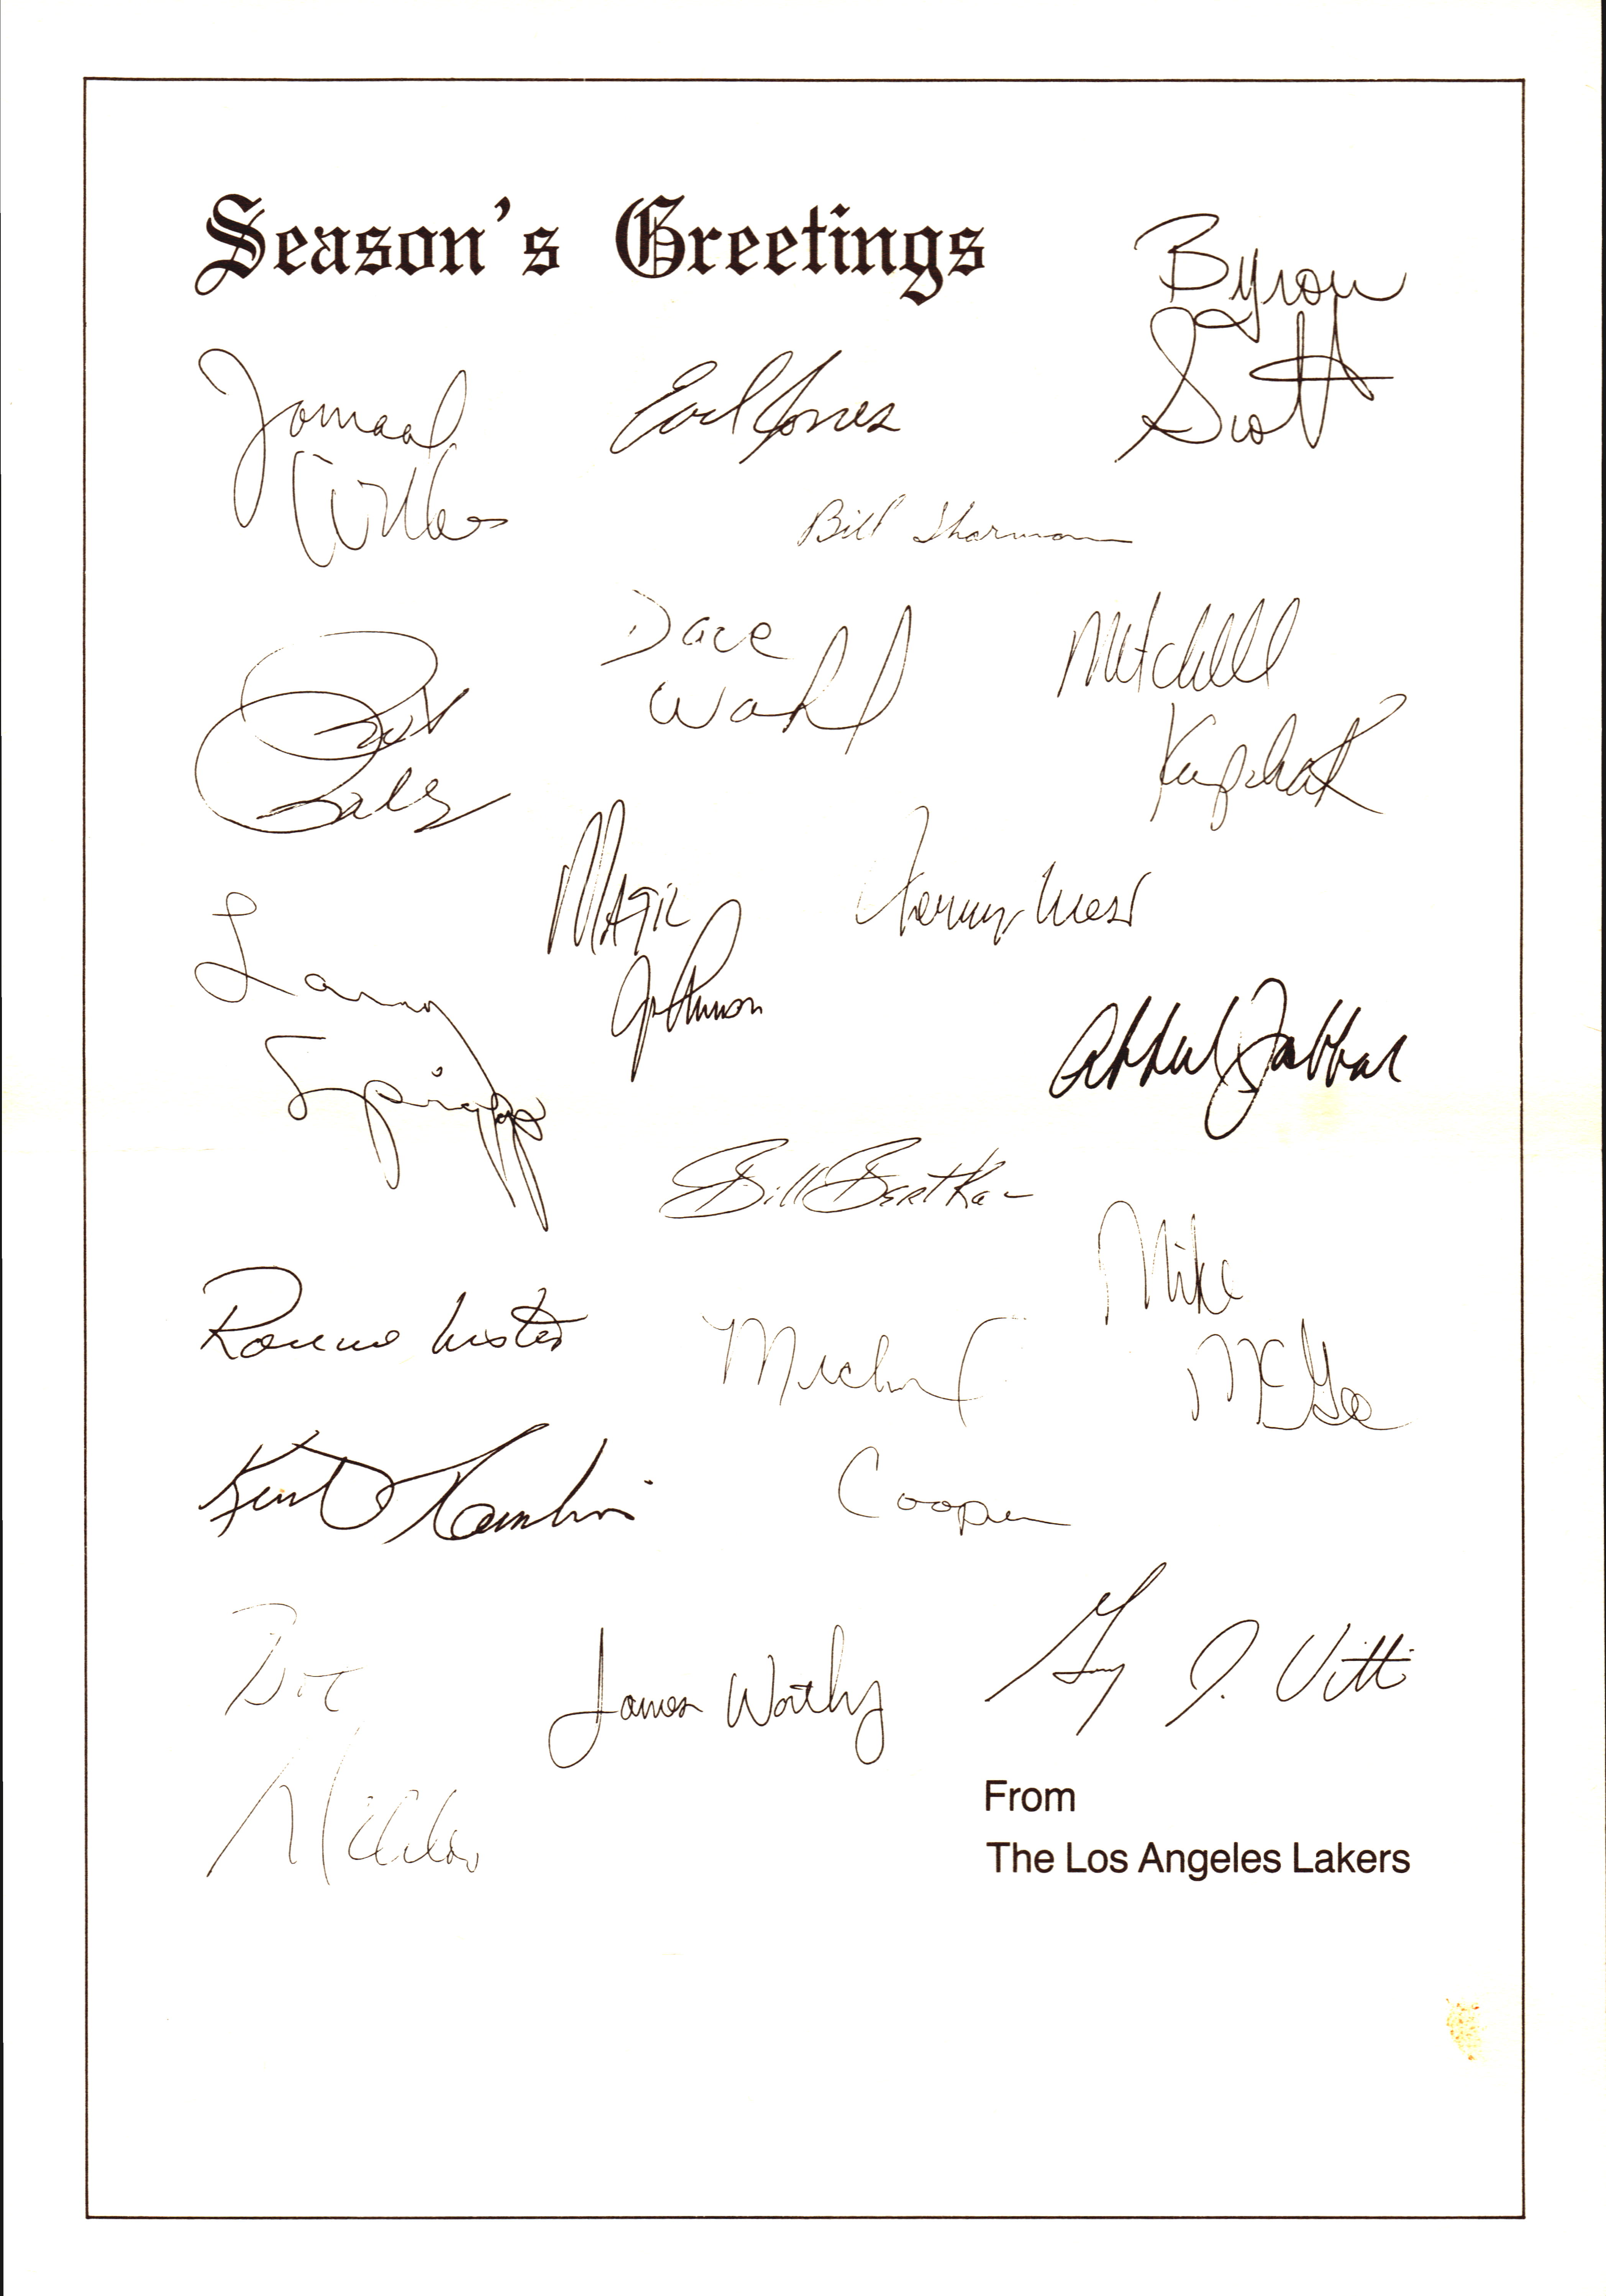 Season's Greetings
Byron
Scott
Jamaal
Wilkes
Earl Jones
Bill Sharman
Dave
Wohl
Mitchell
Kupchak
Pat
Riley
Magic
Johnson
Jerry West
Larry
Spriggs
Abdul Jabbar
Bill Bertka
Mike
McGee
Ronnie Lester
Michael
Cooper
Kurt Rambis
Bob
McAdoo
James Worthy
Gary J. Vitti
From
The Los Angeles Lakers